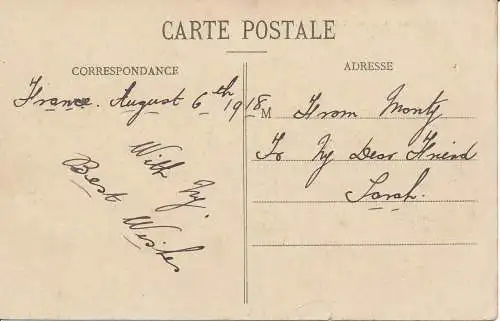 CARTE POSTALE
CORRESPONDANCE
France. August 6th 1918
With My
Best Wishes
ADRESSE
M From Monty
To My Dear Friend
Sarah.